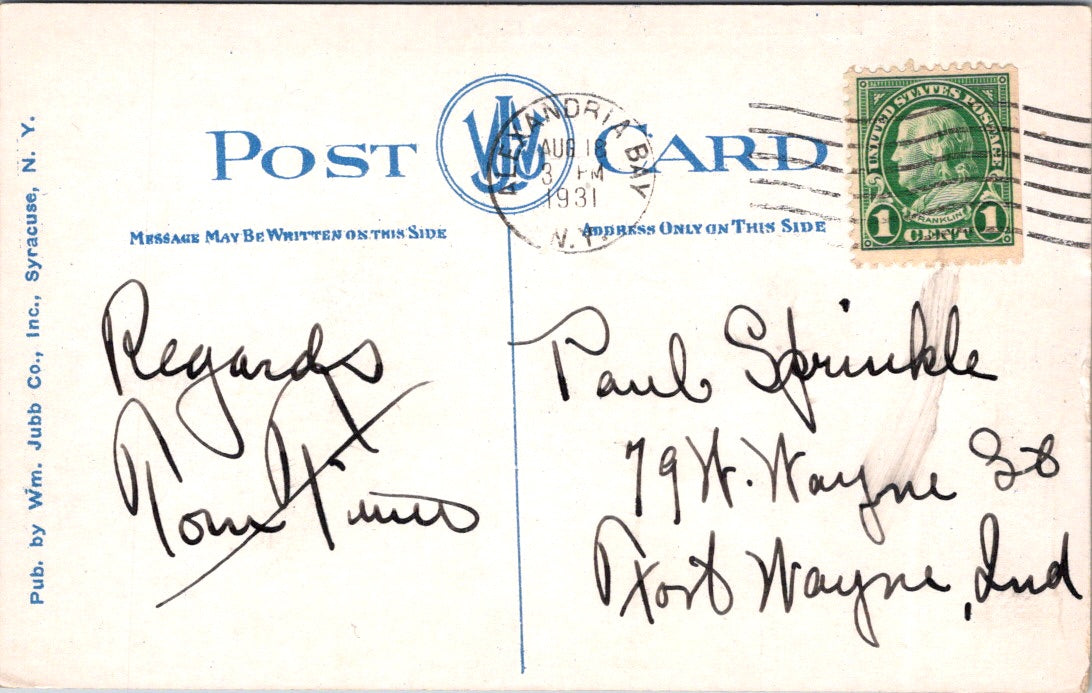 POST CARD
WJ
ALEXANDRIA BAY
AUG 18
3 PM
1931
N.Y.
UNITED STATES POSTAGE
FRANKLIN
1 CENT 1
MESSAGE MAY BE WRITTEN ON THIS SIDE
ADDRESS ONLY ON THIS SIDE
Regards
Tom
Paul Sprinkle
79 W. Wayne St
Fort Wayne, Ind
Pub. by Wm. Jubb Co., Inc., Syracuse, N. Y.